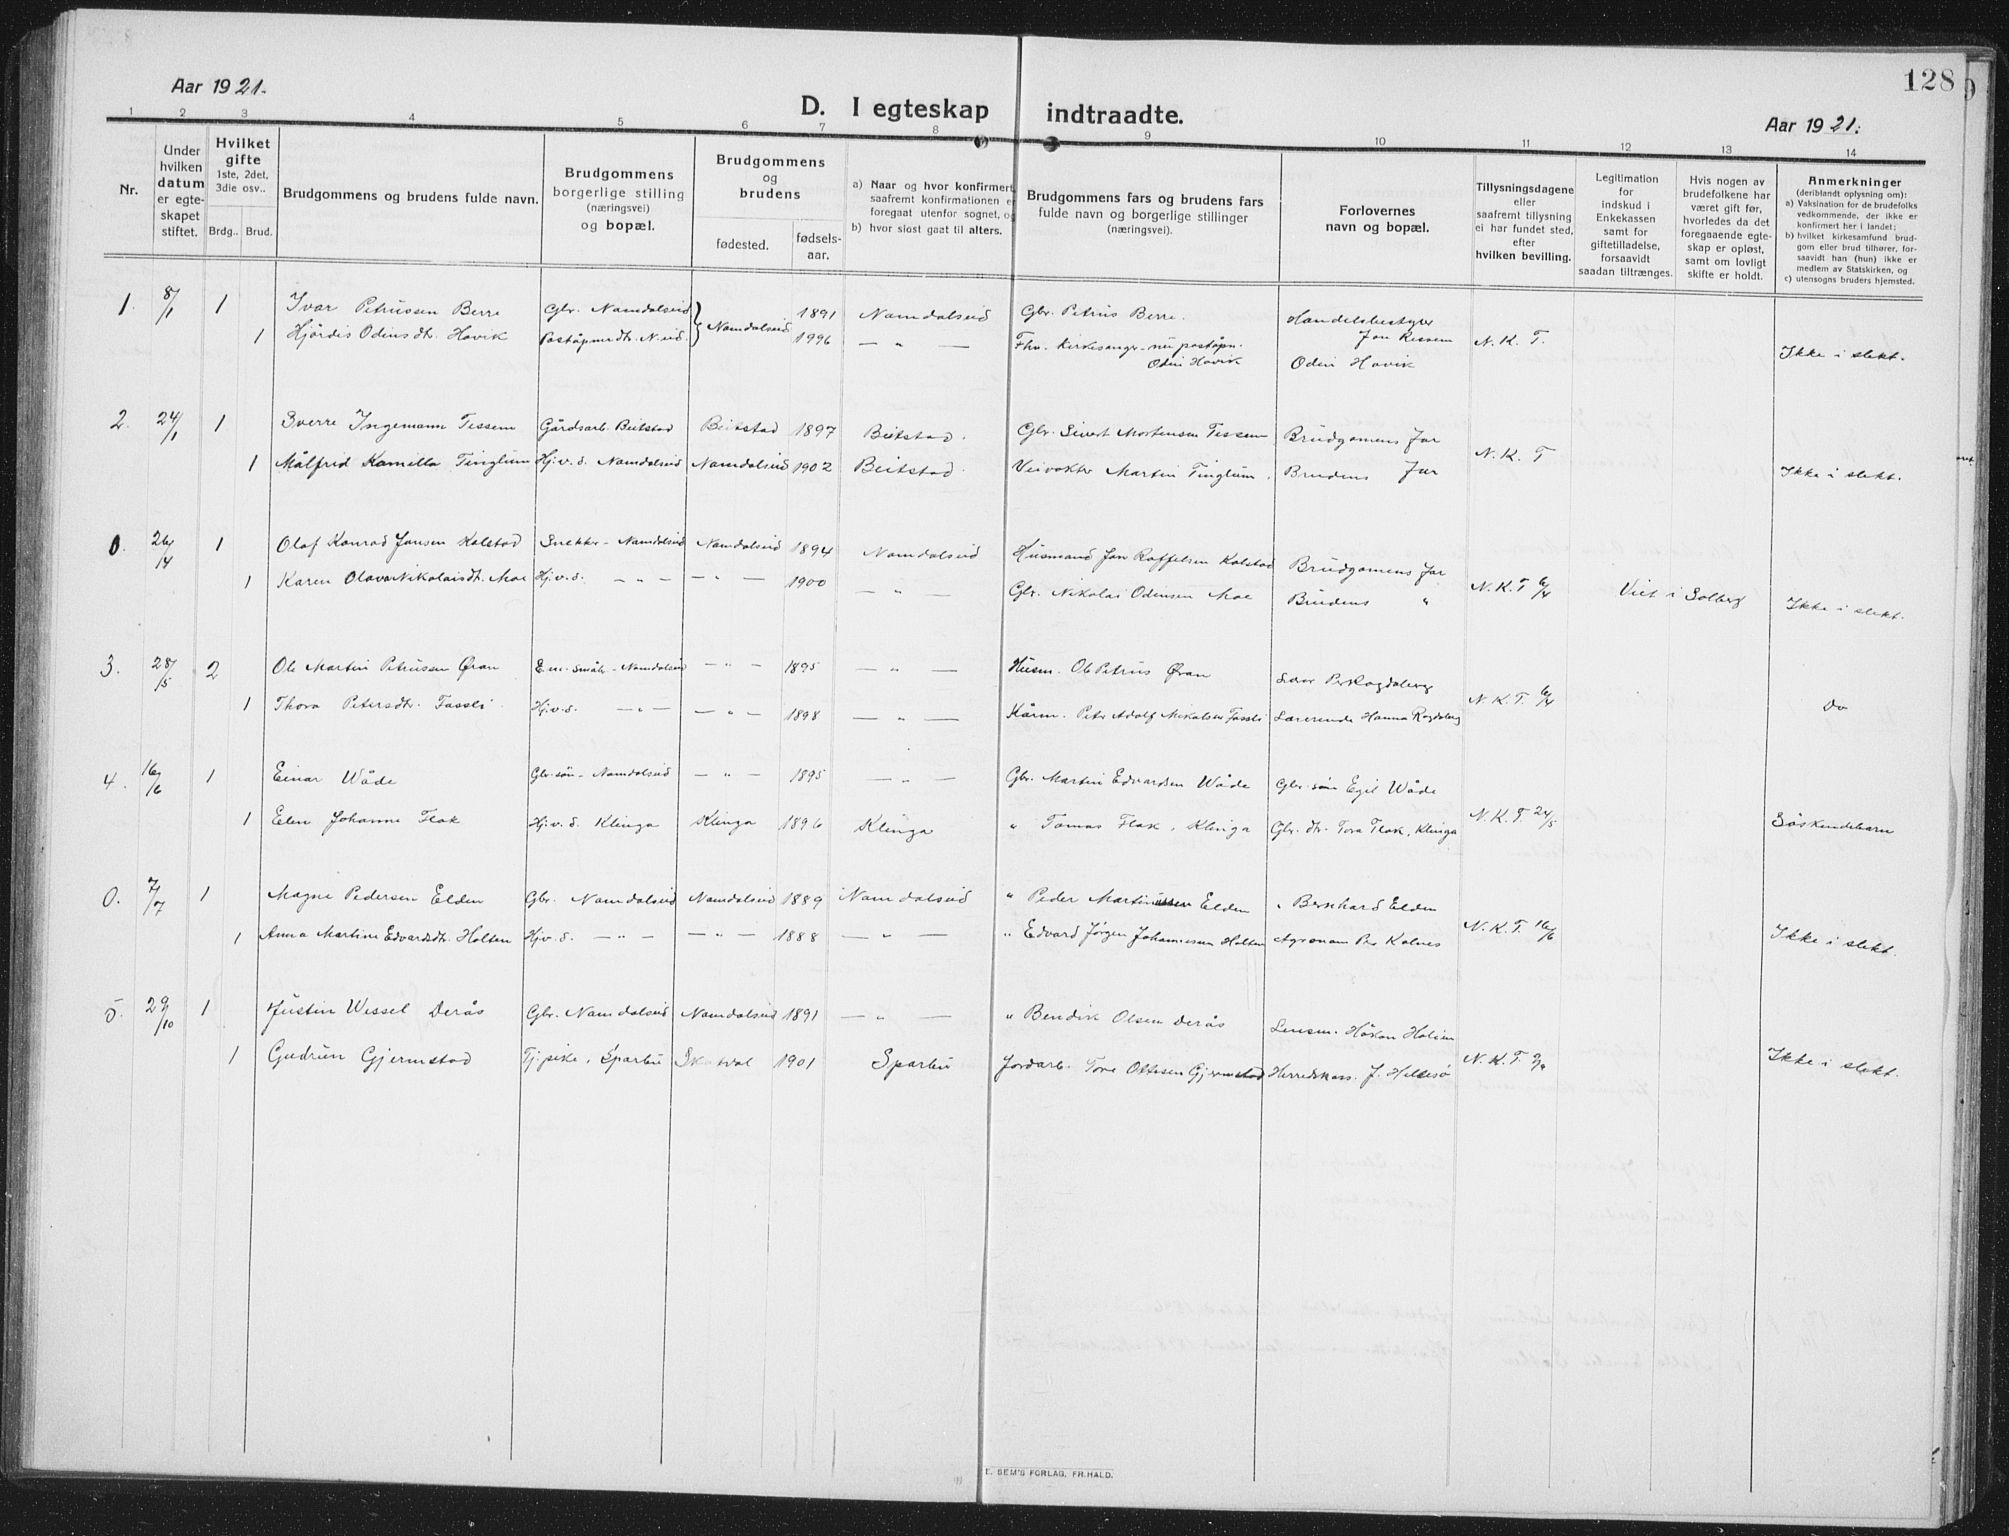 128
Aar 1921.
D. I egteskap indtraadte.
Aar 1921.
1 2 3 4 5 6 7 8 9 10 11 12 13 14
Nr.
Under hvilken datum er egteskapet stiftet.
Hvilket gifte 1ste, 2det, 3die osv..
Brdg.. Brud.
Brudgommens og brudens fulde navn.
Brudgommens borgerlige stilling (næringsvei) og bopæl.
Brudgommens og brudens
fødested. fødsels-aar.
a) Naar og hvor konfirmert, saafremt konfirmationen er foregaat utenfor sognet, og
b) hvor sidst gaat til alters.
Brudgommens fars og brudens fars fulde navn og borgerlige stillinger (næringsvei).
Forlovernes navn og bopæl.
Tillysningsdagene eller saafremt tillysning ei har fundet sted, efter hvilken bevilling.
Legitimation for indskud i Enkekassen samt for giftetilladelse, forsaavidt saadan tiltrænges.
Hvis nogen av brudefolkene har været gift før, hvorledes da det foregaaende egteskap er opløst, samt om lovligt skifte er holdt.
Anmerkninger (deriblandt oplysning om):
a) Vaksination for de brudefolks vedkommende, der ikke er konfirmert her i landet;
b) hvilket kirkesamfund brudgom eller brud tilhører, forsaavidt han (hun) ikke er medlem av Statskirken, og
c) utensogns bruders hjemsted.
1. 8/1 1 Ivar Petrussen Berre Gbr. Namdalseid Namdalseid 1891 Namdalseid Gbr. Petrus Berre. Handelsbestyrer Jon Kissem
1 Hjördis Odinsdtr. Hovik Poståpnerdtr. N.eid. 1996 — " — Fhv. Kirkesanger - nu poståpn. Odin Hovik Odin Hovik N. K. T. Ikke i slekt.
2. 24/1 1 Sverre Ingemann Tessem Gårdsarb. Beitstad Beitstad 1897 Beitstad. Gbr. Sivert Mortensen Tessem Brudgomens far
1 Målfrid Kamilla Tinglum Hj.v.d. Namdalseid Namdalseid 1902 Beitstad. Veivokter Martin Tinglum. Brudens far N. K. T Ikke i slekt.
0. 26/14 1 Olaf Konrad Jansen Kolstad Snekker - Namdalseid Namdalseid 1894 Namdalseid Husmand Jan Roffelsen Kolstad Brudgomens far
1 Karen Olava Nikolaisdt. Moe Hj.v.d. — " — — " — 1900 — " — Gbr. Nikolai Odinsen Moe Brudens " N. K. T 6/4 Viet i Solberg Ikke i slekt.
3. 28/5 2 Ole Martin Petrussen Øran E.m. småbr - Namdalseid — " — 1895 — " — Husm. Ole Petrus Øran Lærer Per Rogdaberg
1 Thora Petersdtr. Fossli. Hj.v.d. — " — — " — 1898 — " — Kårm. Peter Adolf Mikalsen Fossli Lærerinde Hanna Rogdaberg N. K. T. 6/4 Do
4. 16/6 1 Einar Wåde Gbr.søn - Namdalseid — " — 1895 — " — Gbr. Martin Edvardsen Wåde Gbr. søn Egil Wåde
1 Elen Johanne Flak Hj.v.d. Klinga Klinga 1896 Klinga " Tomas Flak, Klinga Gbr. dtr. Tora Flak, Klinga N. K. T. 24/5 Söskendebarn
0. 7/7 1 Magne Pedersen Elden Gbr. Namdalseid Namdalseid 1889 Namdalseid " Peder Martinussen Elden " Bernhard Elden
1 Anna Martine Edvardsdtr. Holten Hj.v.d. — " — — " — 1888 — " — " Edvard Jørgen Johannessen Holten Agronom Per Kolnes N. K. T. 16/6 Ikke i slekt.
5. 29/10 1 Justin Wessel Derås Gbr. Namdalseid Namdalseid 1891 — " — " Bendik Olsen Derås Lensm. Håkon Holien
1 Gudrun Gjermstad Tj.pike, Sparbu Skatval 1901 Sparbu Jordarb. Tore Ottesen Gjermstad Herredskass. J. Hellesø N. K. T. Ikke i slekt.
E. SEM'S FORLAG, FR.HALD.